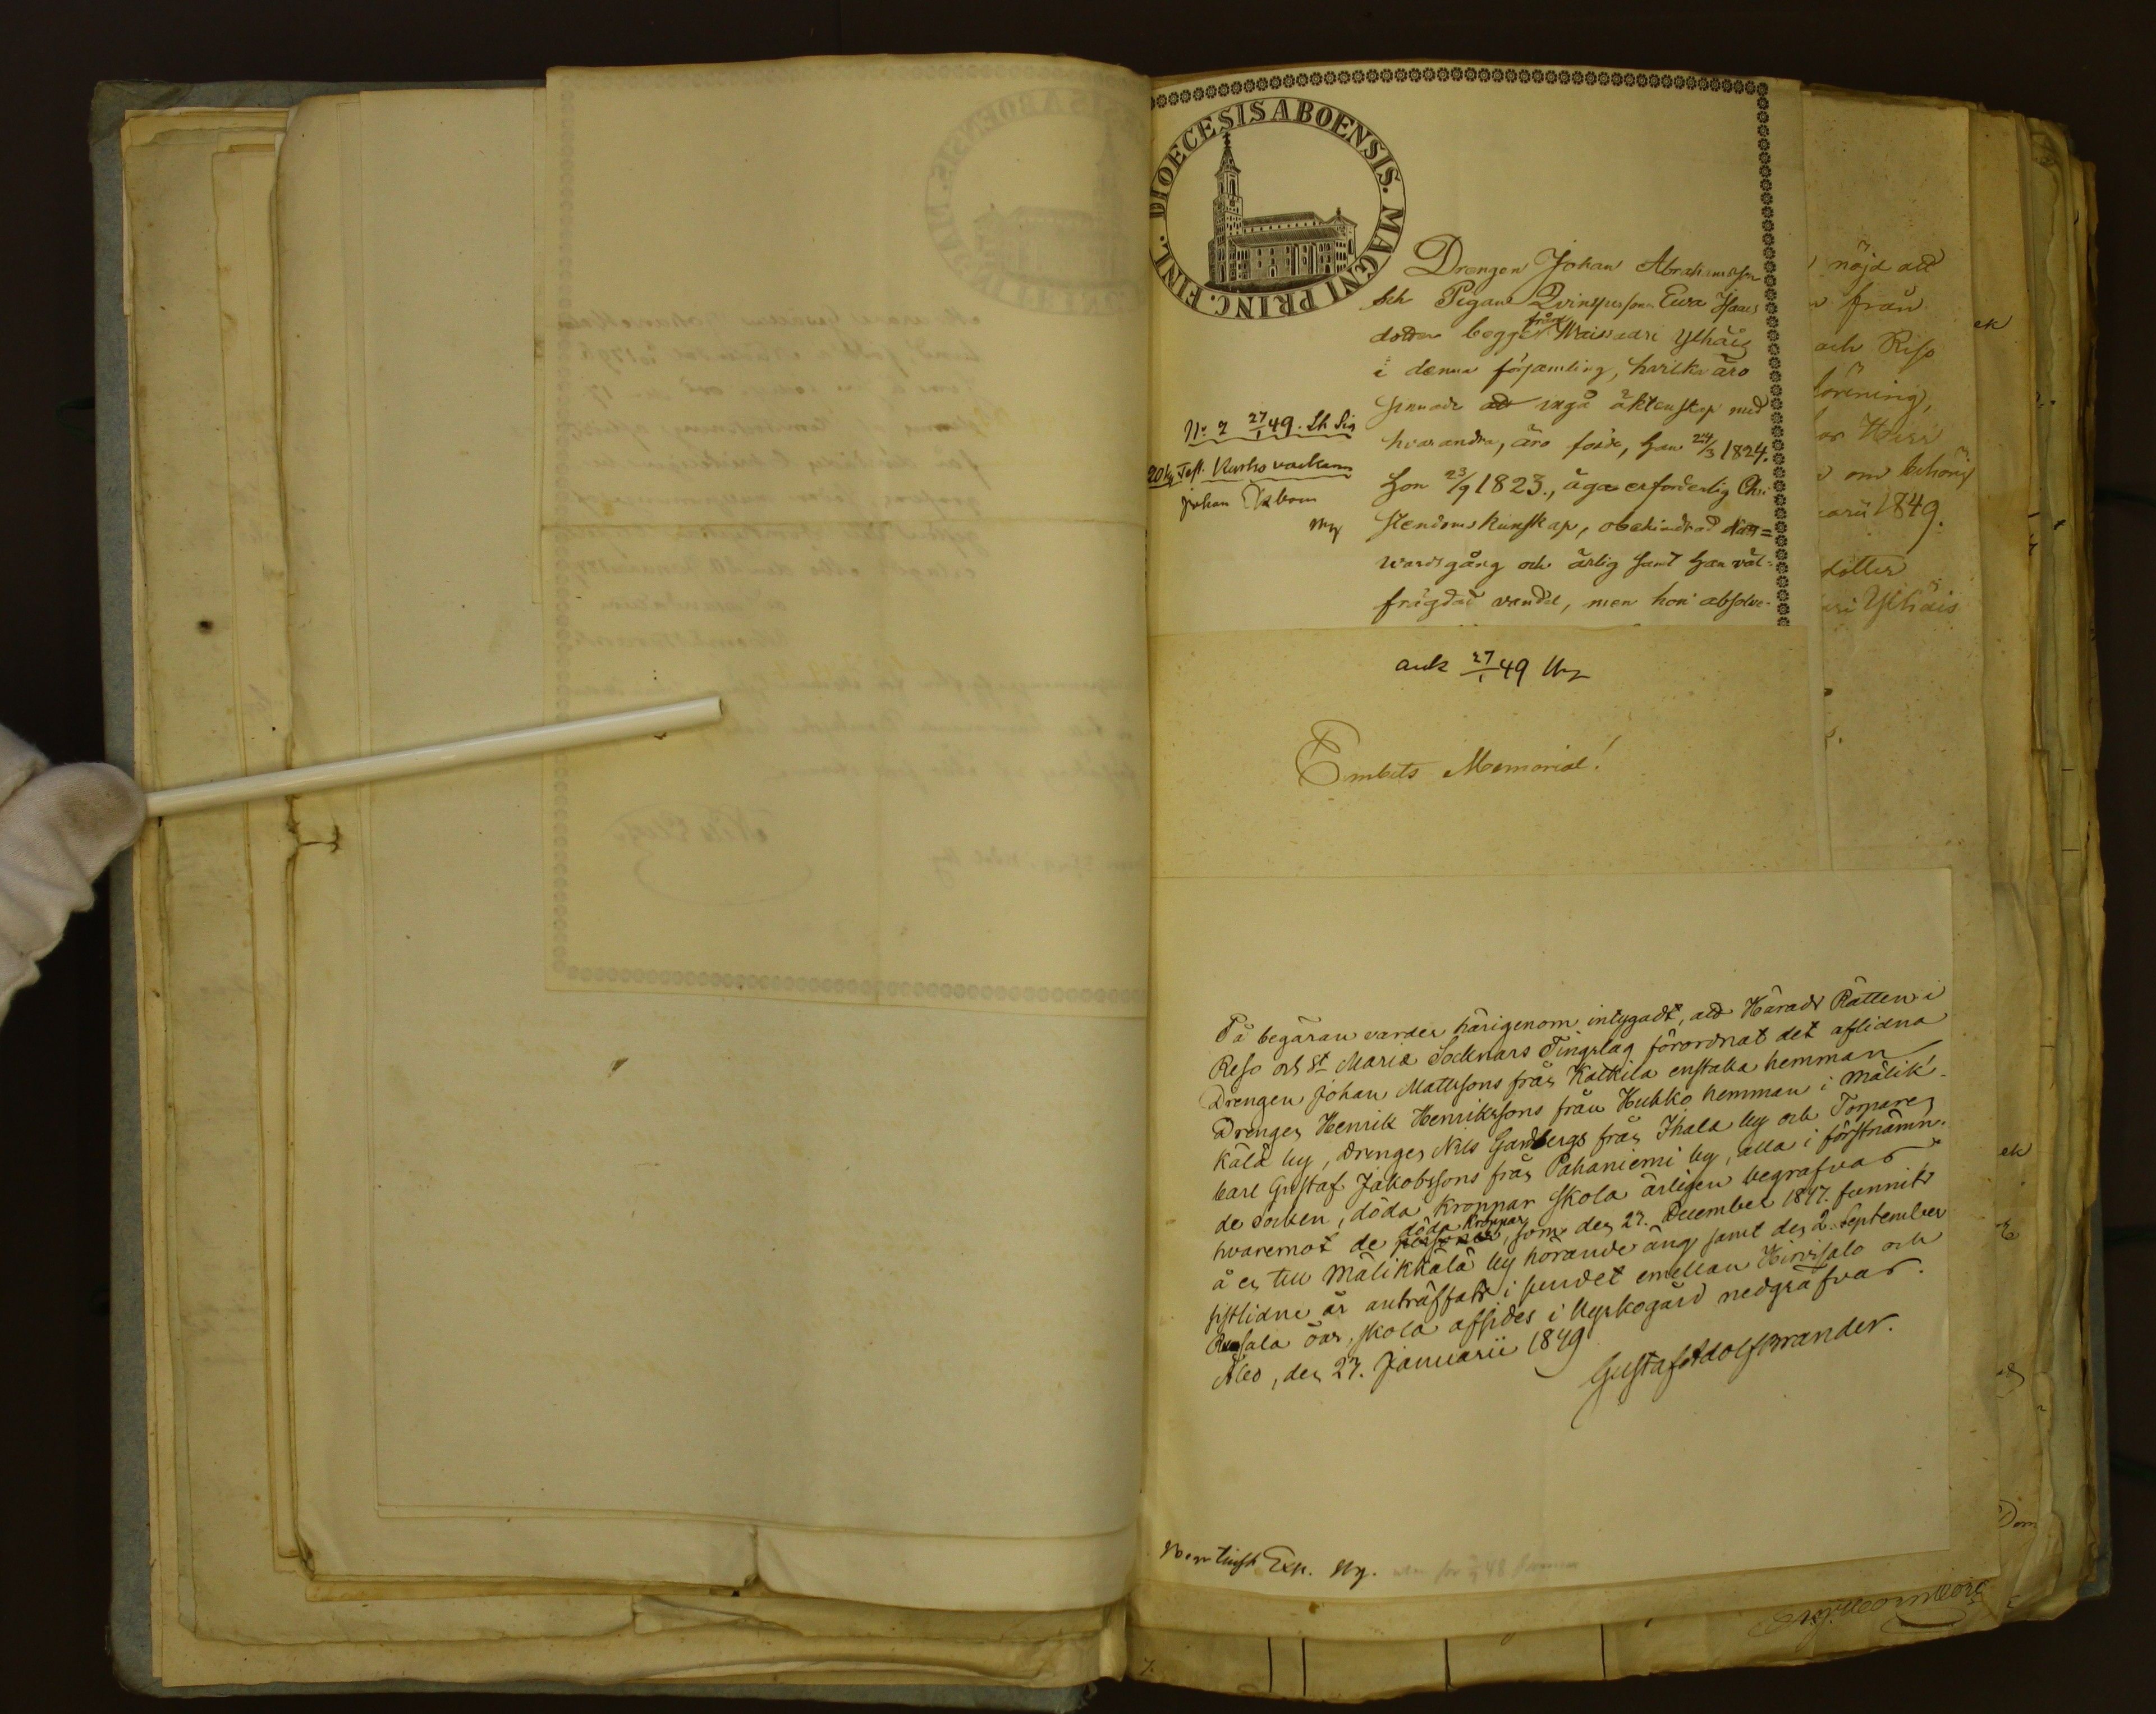 DIOECESIS ABOENSIS. MAGNI PRINC. FINL.
Drengen Johan Abrahamsson
och Pigan Qvinspersonen Ewa Isaks
dotter begge från Waissaari Ylhäis
i denna församling, hvilka äro
sinnade att ingå äktenskap med
hvarandra, äro födde, han 24/3 1824.
hon 23/9 1823., äga erforderlig Chri
stendoms kunskap, obehindrad natt=
wardsgång och ärlig samt han väl-
frägdad vandel, men hon absolve-
No 2 27/1 49.
Johan
ank 27/1 49
Embets Memorial!
På begäran varder härigenom intygadt, att Härads Rätten i
Reso och St Mariæ Socknars Tingslag förordnat det aflidna
Drengen Johan Mattssons från Kaikila enstaka hemman
Drengen Henrik Henrikssons från Huhko hemman i Mälik-
kälä by, Drengen Nils Sandbergs från Ihala by och Torparen
Carl Gustaf Jakobssons från Pahaniemi by, alla i förstnämn-
de socken, döda kroppar skola ärligen begrafvas
hvaremot de personer döda kroppar, som den 27. December 1847. funnits
å en till Mälikkälä by hörande äng samt den 2. September
sistlidne år anträffats i sundet emellan Hirvisalo och
Runsala öar, skola afsides i kyrkogård nedgräfvas.
Åbo, den 27. Januarii 1849.
Gustaf Adolf Brander.
Exp.
nöjd att
från
och Reso
förening,
om behörig
arii 1849.
dotter
Ylhäis